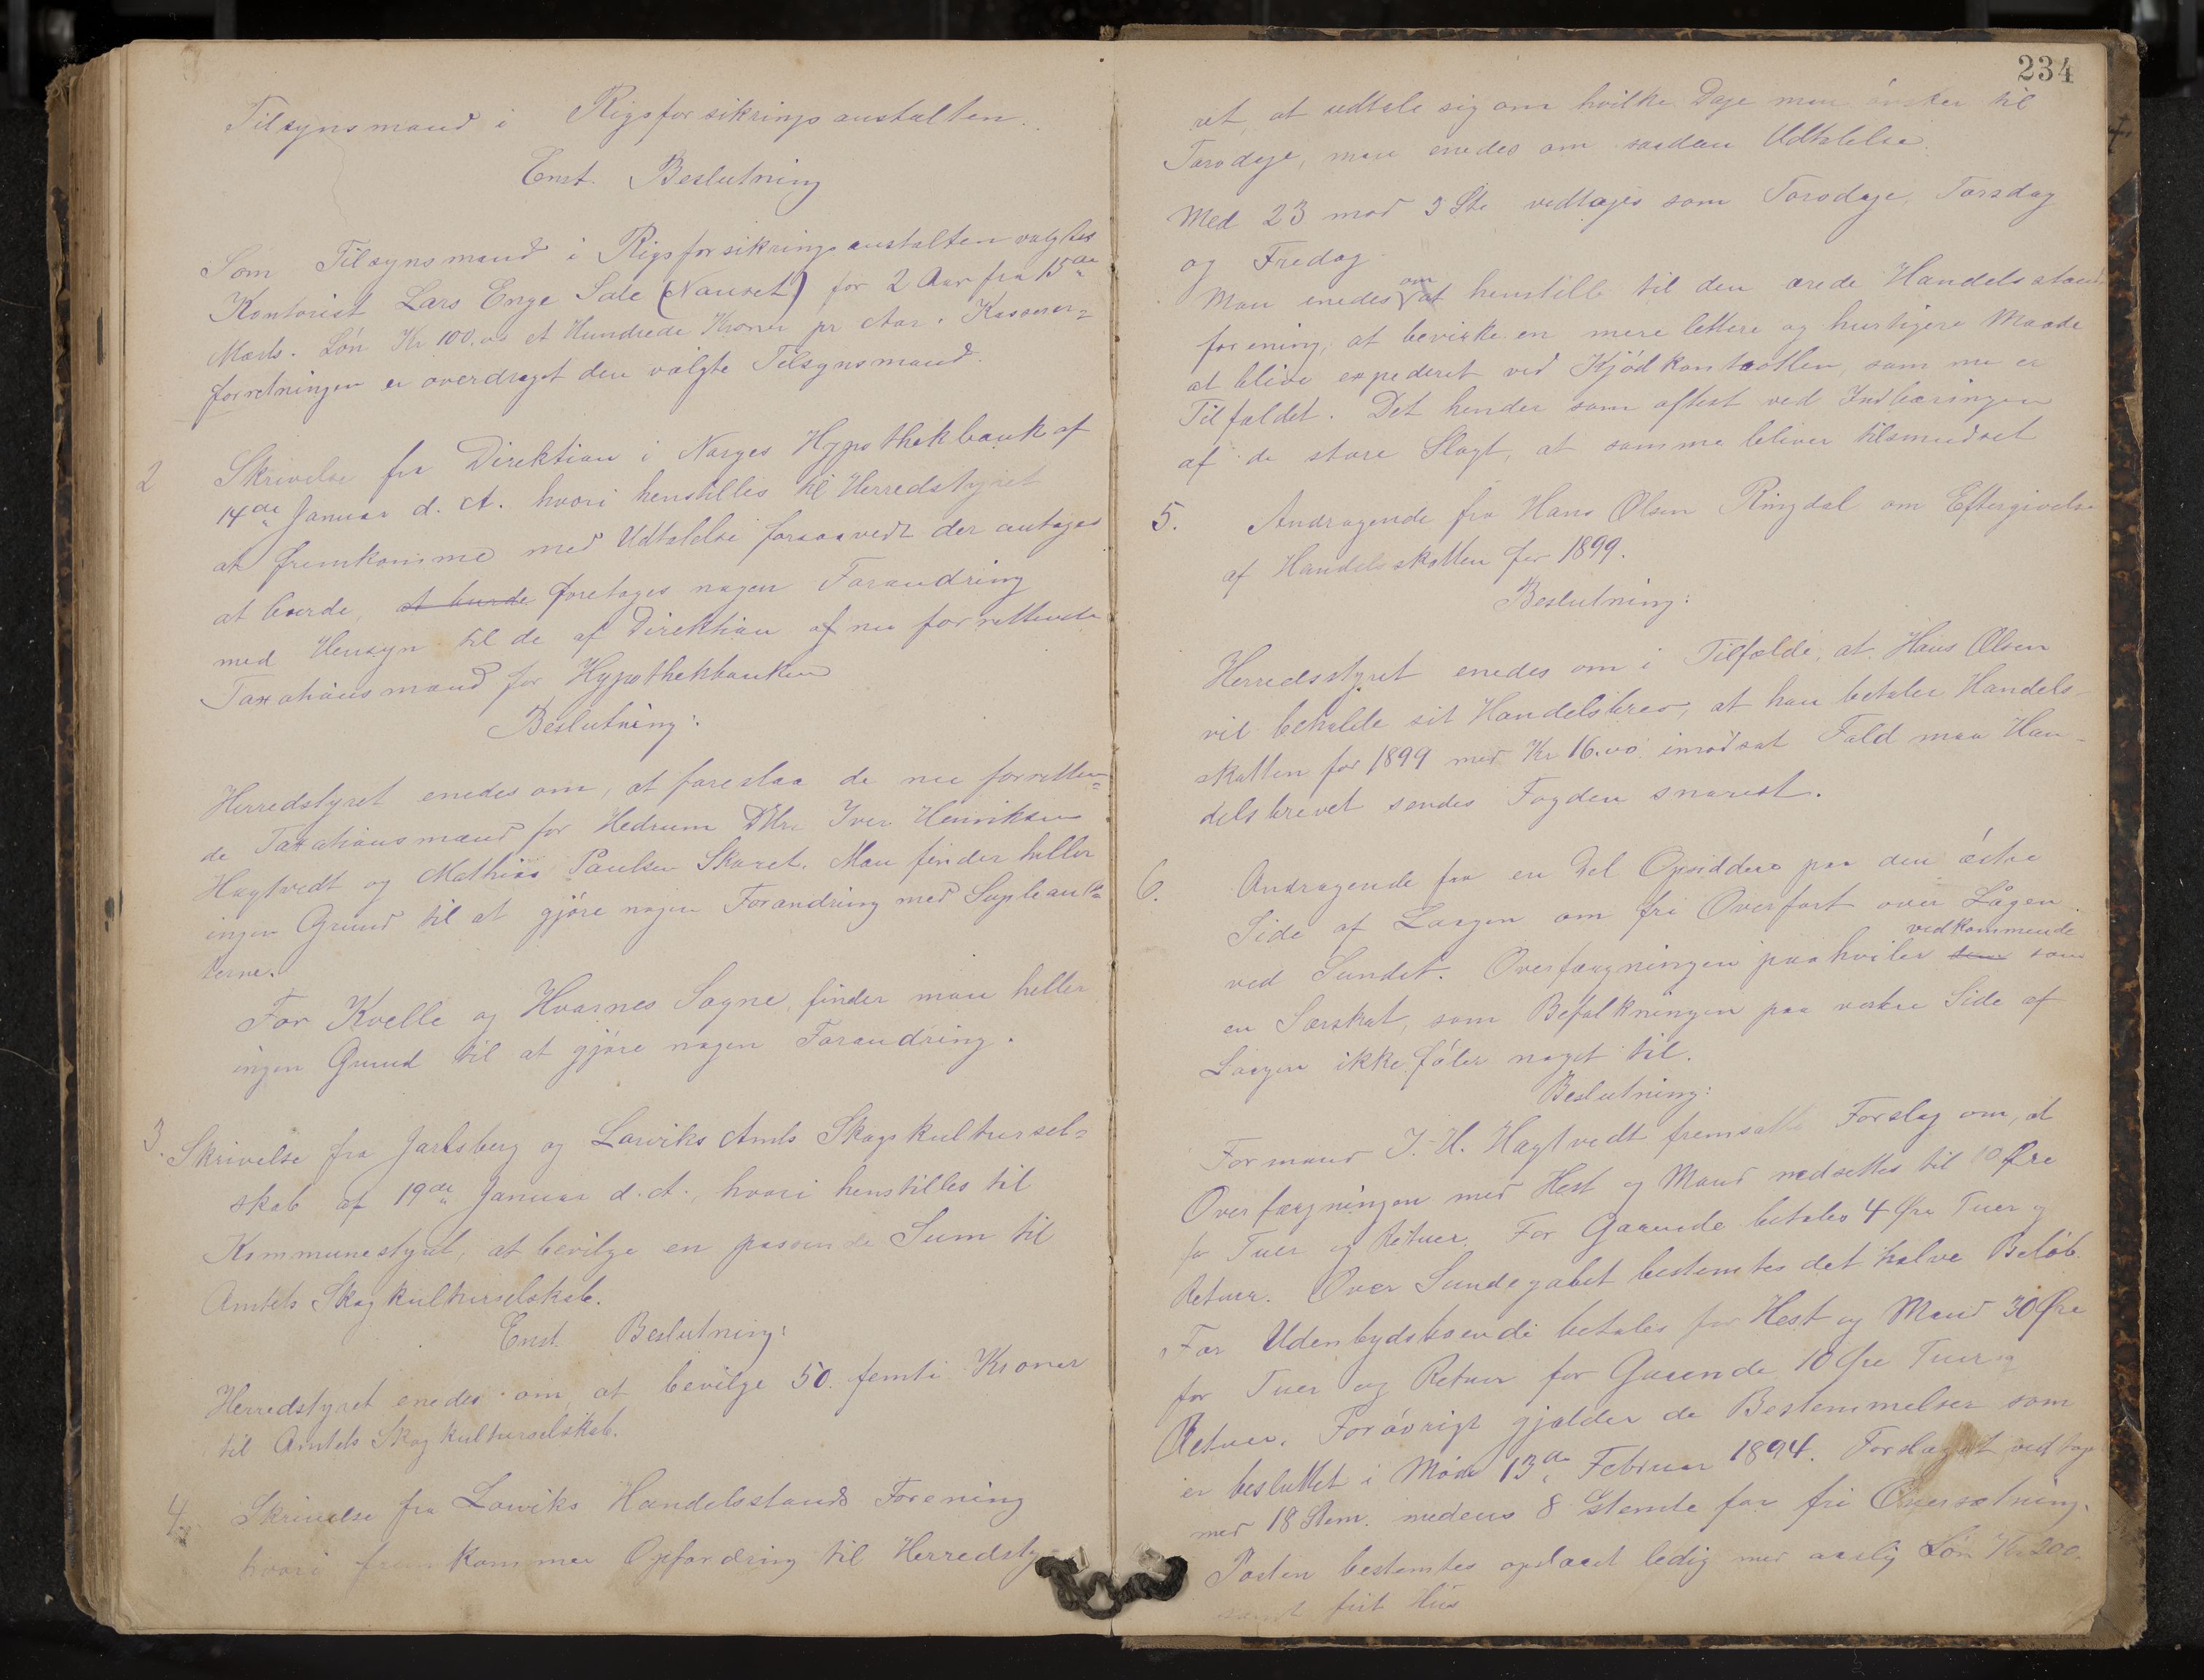 Tilsynsmand i Rigsforsikringsanstalten.
Enst. Beslutning
Som Tilsynsmand i Rigsforsikringsanstalten valgtes
Kontorist Lars Enge Sole (Nanset) for 2 Aar fra 15de
Marts. Løn Kr 100.00 et Hundrede Kroner pr Aar. Kasserer=
forretningen er overdraget den valgte Tilsynsmand.
2 Skrivelse fra Direktion i Norges Hypothekbank af
14de Januar d. A. hvori henstilles til Herredstyret
at fremkomme med Udtalelse forsaavedt der antages
at burde, at burde foretages nogen Forandring
med Hensyn til de af Direktion af nu forrettende
Taxationsmænd for Hypothekbanken
Beslutning:
Herredstyret enedes om, at foreslaa de nu forretten=
de Taxationsmænd for Hedrum DHr. Iver Henriksen
Hagtvedt og Mathias Paulsen Skaret. Man finder heller
ingen Grund til at gjøre nogen Forandring med Suplean=
terne.
For Kvelle og Hvarnes Sogne, finder man heller
ingen Grund til at gjøre nogen Forandring.
3. Skrivelse fra Jarlsberg og Larviks Amts Skogskultursel=
skab af 19de Januar d. A., hvori henstilles til
Kommunestyret, at bevilge en passende Sum til
Amtets Skogkulturselskab.
Enst. Beslutning:
Herredstyret enedes om, at bevilge 50. femti Kroner
til Amtets Skogkulturselskab.
4. Skrivelse fra Larviks Handelsstands Forening
hvori fremkommer Opfordring til Herredsty-
234
ret, at udtale sig om hvilke Dage man ønsker til
Torvdage, man enedes om saadan Udtalelse.
Med 23 mod 3 St. vedtages som Torvdage, Torsdag
og Fredag.
Man enedes om at henstille til den ærede Handelsstands
forening, at bevirke en mere lettere og hurtigere Maade
at blive expederet ved Kjødkontrollen, som nu er
Tilfældet. Det hender som oftest ved Indbæringen
af de store Slagt, at samme bliver tilsmudset
5. Andragende fra Hans Olsen Ringdal om Eftergivelse
af Handelsskatten for 1899.
Beslutning:
Herredsstyret enedes om i Tilfælde, at Hans Olsen
vil beholde sit Handelsbrev, at han betaler Handels-
skatten for 1899 med Kr 16.00 imodsat Fald maa Han-
delsbrevet sendes Fogden snarest.
6. Andragende fra en Del Opsiddere paa den østre
Side af Laagen om fri Overfart over Lågen
ved Sundet. Overfærgningen paahviler vedkommende som
en Særskat, som Befolkningen paa vestre Side af
Laagen ikke føler noget til.
Beslutning:
Formand I. H. Hagtvedt fremsatte Forslag om, at
Overfærgningen med Hest og Mand nedsættes til 10 Øre
for Tuer og Retuer. For Gaaende betales 4 Øre Tuer og
Retuer. Over Sundegabet bestemtes det halve Beløb.
For Udenbygdsboende betales for Hest og Mand 30 Øre
for Tuer og Retuer for Gaaende 10 Øre Tuer og
Retuer. Forøvrigt gjælder de Bestemmelser som
er besluttet i Møde 13de Februar 1894. Forslaget vedtoges
med 18 Stem. medens 8 stemte for fri Oversætning.
Posten bestemtes opslaaet ledig med aarlig Løn Kr 200.
samt frit Hus